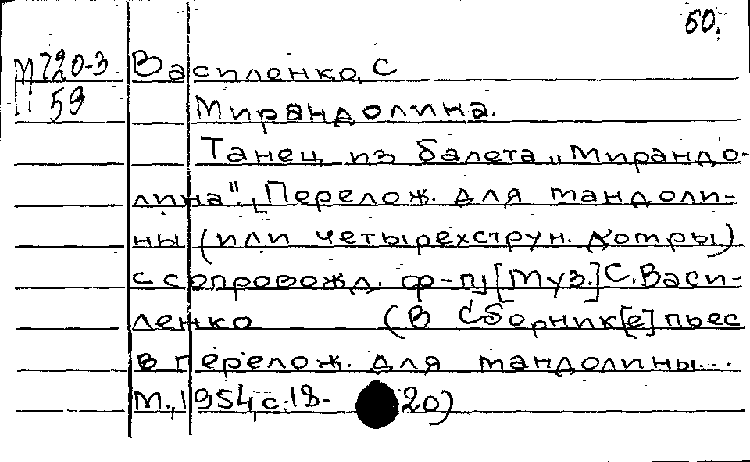 50.
М720-3 Василенко, С
11 59 Мирандолина.
Танец из балета „Мирандо-
лина". Перелож. для мандоли-
ны (или четырехструн. домры)
с сопровожд. ф-п, [Муз.] С. Васи-
ленко (В Сборник[е] пьес
в перелож. для мандолины...
М., 1954, с. 18- 20)